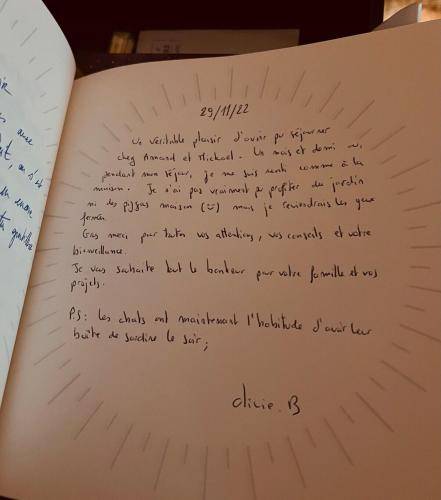 29/11/22
Un véritable plaisir d'avoir pu séjourner
chez Armand et Mickael. Un mois et demi où,
pendant mon séjour, je me suis senti comme à la
maison. Je n'ai pas vraiment pu profiter du jardin
ni des pizzas maison (:) mais je reviendrais les yeux
fermés.
Gros merci pour toutes vos attentions, vos conseils et votre
bienveillance.
Je vous souhaite tout le bonheur pour votre famille et vos
projets.
PS: Les chats ont maintenant l'habitude d'avoir leur
boîte de sardine le soir;
Olivie. B